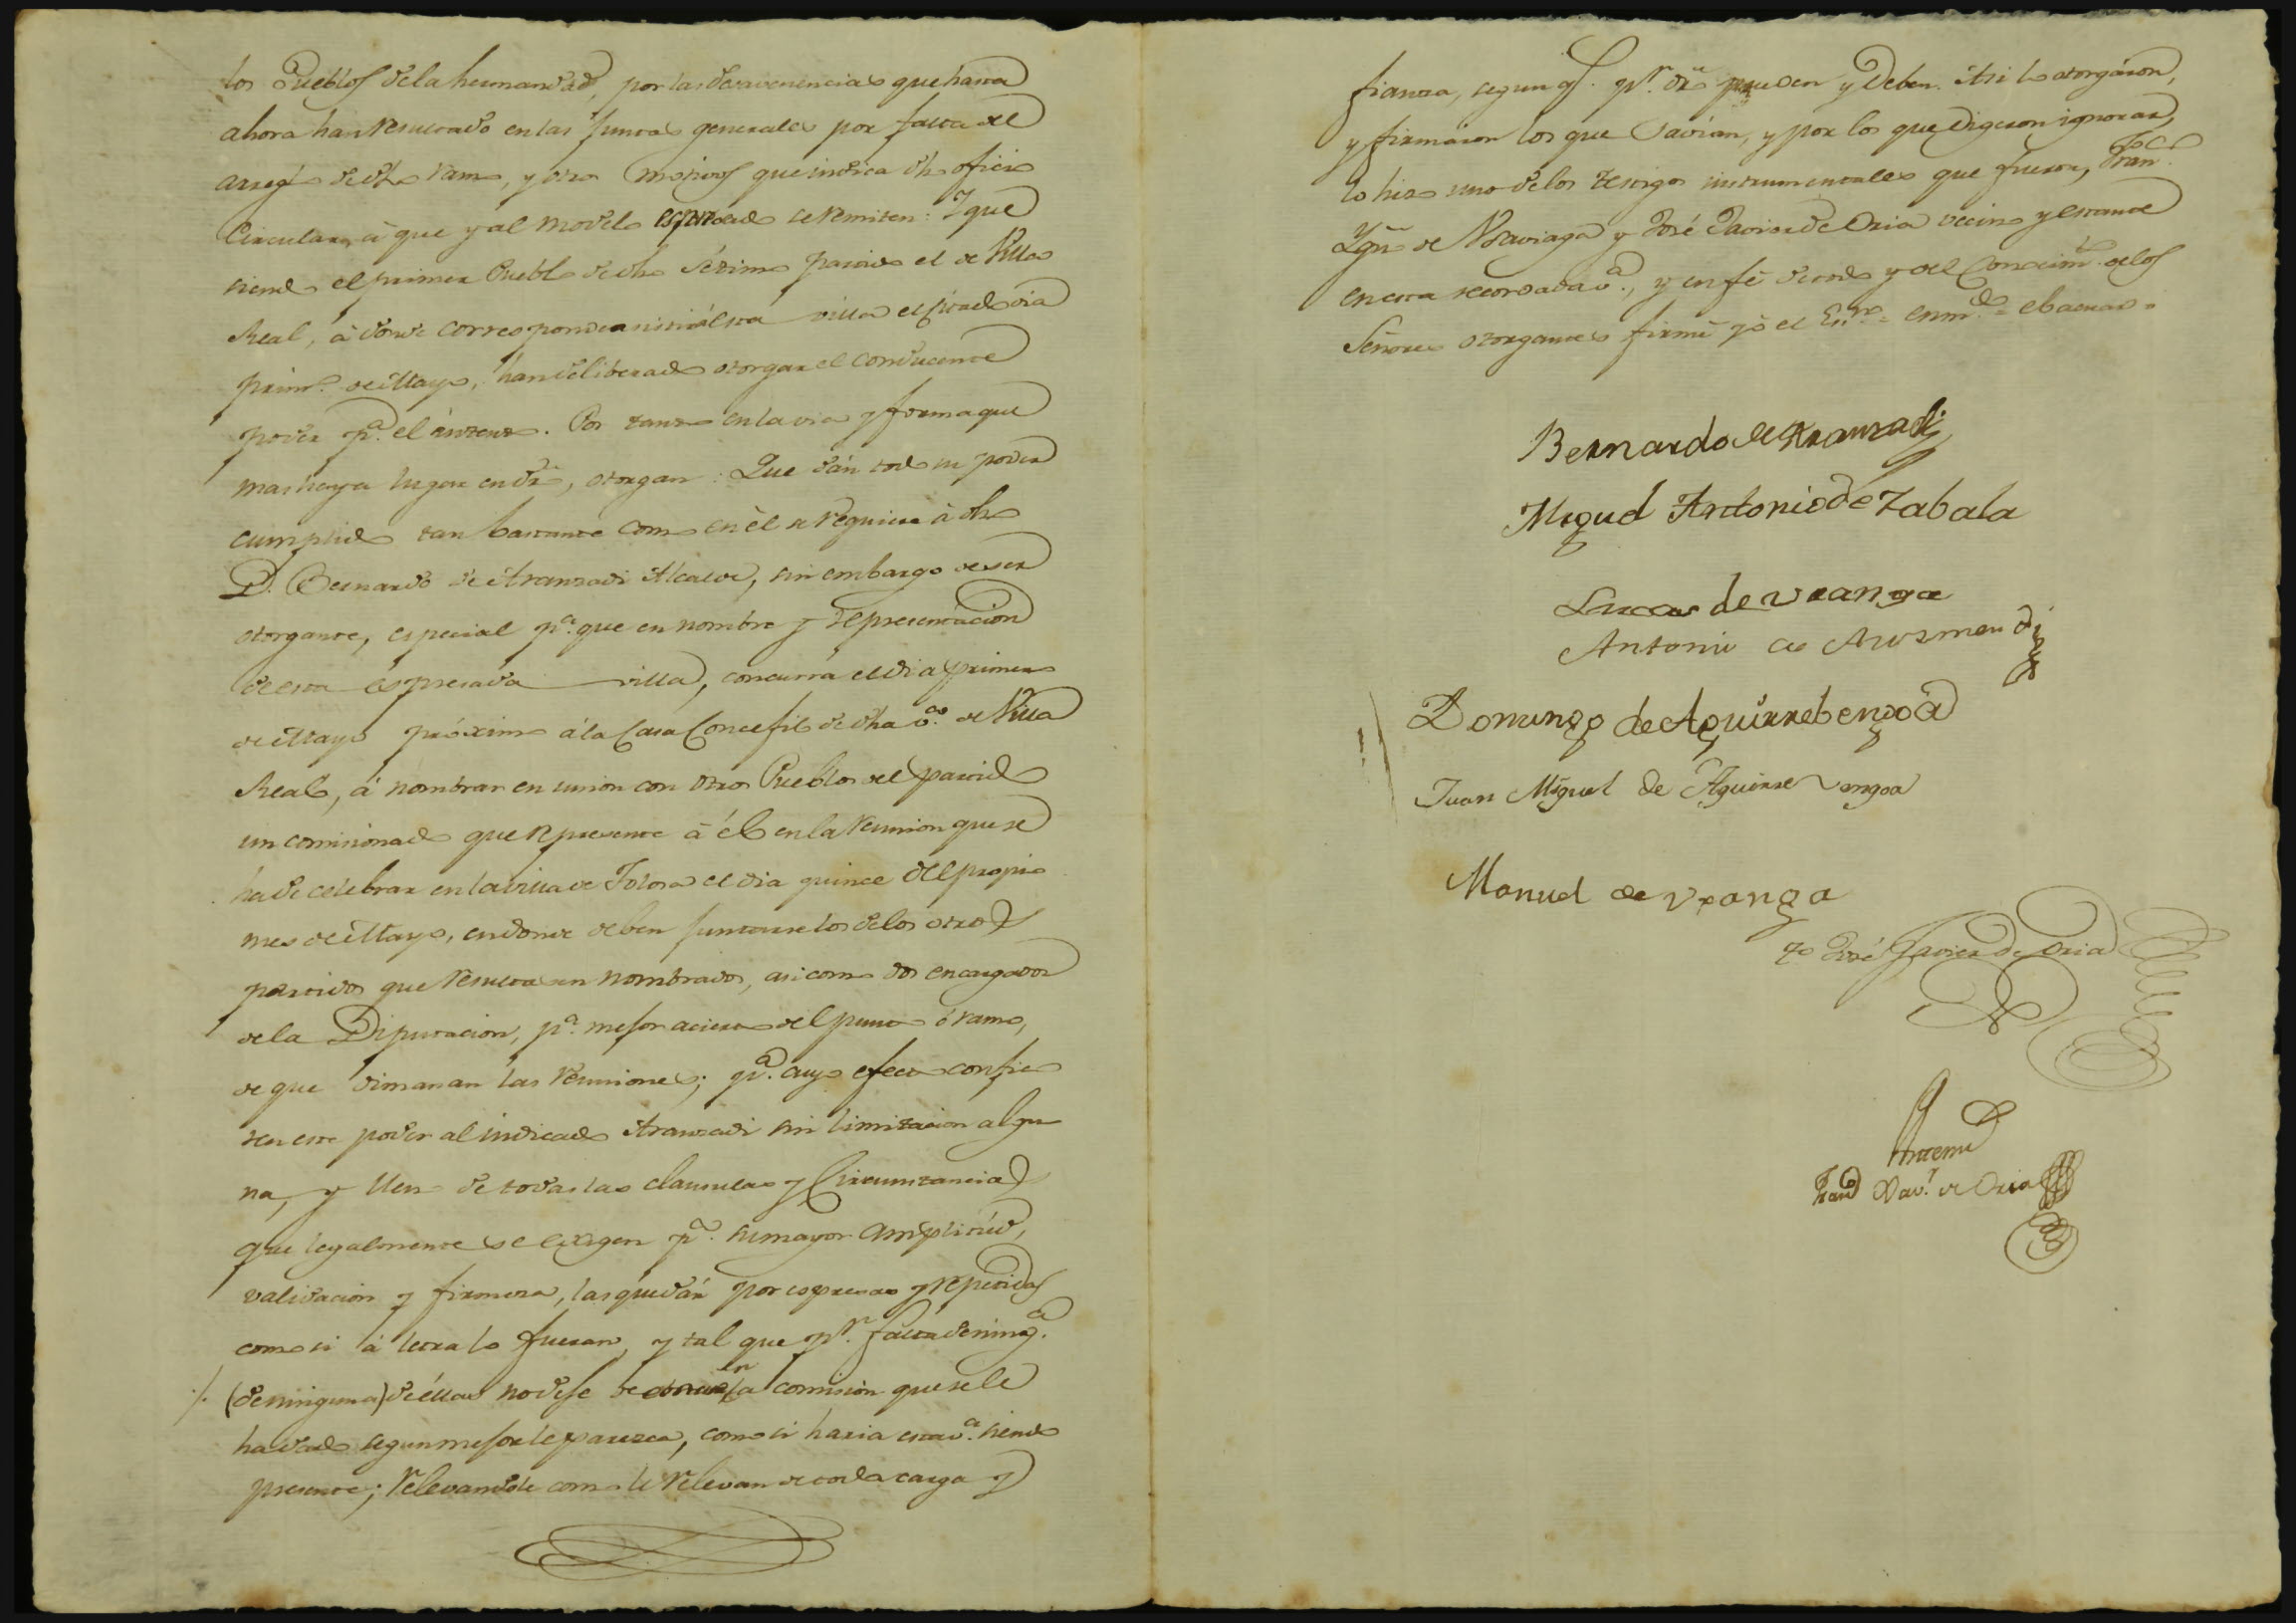 los Pueblos de la hermandad, por las desavenencias que hasta
ahora han resultado en las juntas generales por falta del
arreglo de dho ramo, y otros motivos que indica dho oficio
Circular, á que y al modelo se remiten: Y que
siendo el primer Pueblo de dho sétimo partido el de Villa
Real, á donde corresponde asistir ésta villa el citado dia
prim.o de Mayo, han deliberado otorgar el conducente
poder p.a el intento. Por tanto en la via y forma que
mas haya lugar en dr̃o, otorgan: Que dán todo su poder
cumplido tan bastante como en él se requiere á dho
D. Bernardo de Aranzadi Alcalde, sin embargo de ser
otorgante, especial p.a que en nombre y representacion
de esta espresada villa, concurra el dia primero
de Mayo próximo á la Casa Concejil de dha v.a de Villa
Real, á nombrar en union con otros Pueblos del partido
un comisionado que represente á él en la reunion que se
ha de celebrar en la villa de Tolosa el dia quince del propio
mes de Mayo, en donde deben juntarse los de los otros
partidos que resultaren nombrados, asi como dos encargados
de la Diputacion, p.a mejor acierto del punto ó ramo,
de que dimanan las reuniones; p.a cuyo efecto confie
ren este poder al indicado Aranzadi sin limitacion algu
na, y lleno de todas las clausulas y Circunstancias
que legalmente se exigen p.a su mayor amplitud,
validacion y firmeza, las que dán por espresas y repetidas
como si á letra lo fueran, y tal que p.r falta de ning.a
/. (de ninguna) de éllas no deje de la comision que se le
ha dado segun mejor le parezca, como si haria esta v.a siendo
presente; relevandole como le relevan de toda carga y
fianza, segun q.e p.r dr̃o pueden y deben. Asi lo otorgáron,
y firmáron los que savian, y por los que digeron ignorar,
lo hizo uno de los testigos instrumentales que fueron, Fran.co
Ygn.o de Usaviaga y José Javier de Oria vecino y estante
en esta recordada v.a, y en fé de todo y del Conocim.to de los
Señores otorgantes firmé yo el Es.no = enm.do =
Bernardo de Aranzadi
Miguel Antonio de Zabala
Lucas de Uranga
Antonio de Arozmendi
Domingo de Aguirrebengoa
Juan Miguel de Aguirre vengoa
Manuel de Uranga
t.o José Javier de Oria
Antemi
Fran.co Xav.r de Oria